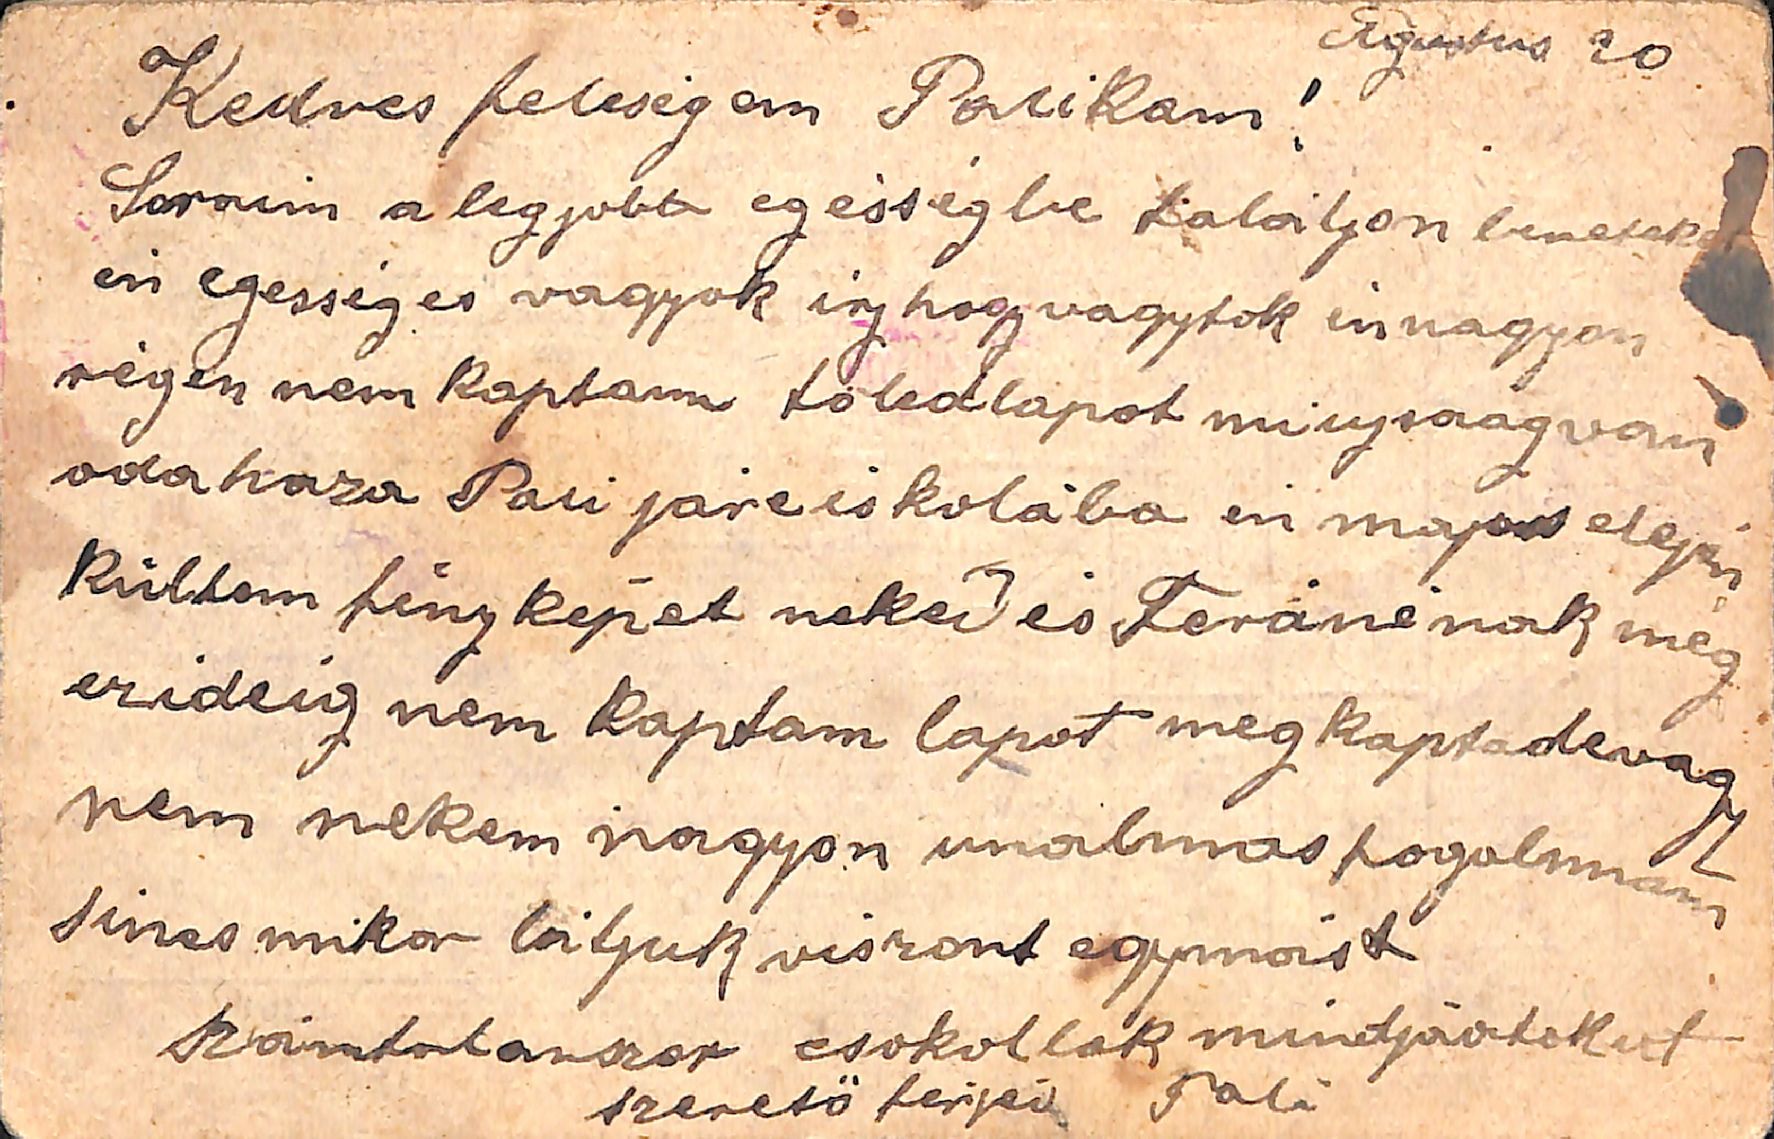 Agustus 20
Kedves feleségem Palikam!
Soraim a legjobb egésségbe talályon beneteket
én egességes vagyok irj hogy vagytok én nagyon
régen nem kaptam töled lapot mi ujsaag van
oda haza Pali jár e iskolába én majus elején
kültem fényképet neked és Feránénak még
ez ideig nem kaptam lapot meg kaptad e vagy
nem nekem nagyon unalmas fogalmam
sincs mikor látjuk viszont egymást
számtalanszor csokollak mindjáatokat
szeretö férjed Pali